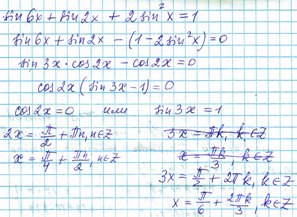 sin6x + sin2x + 2sin²x = 1
sin6x + sin2x - (1 - 2sin²x) = 0
sin3x · cos2x - cos2x = 0
cos2x (sin3x - 1) = 0
cos2x = 0 или sin3x = 1
2x = π/2 + πn, n∈Z
x = π/4 + πn/2, n∈Z
3x = πk, k∈Z
x = πk/3, k∈Z
3x = π/2 + 2πk, k∈Z
x = π/6 + 2πk/3, k∈Z